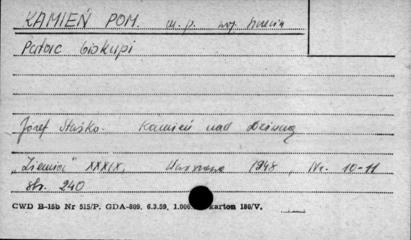 KAMIEŃ POM. m. p. woj.
Pałac biskupi
Józef Staśko. Kamień nad Dziwną
"Ziemia" XXXIX, Warszawa 1948, Nr. 10-11
str. 240
CWD B-15b Nr 515/P. GDA-809. 6.3.59, 1.000. karton 180/V.